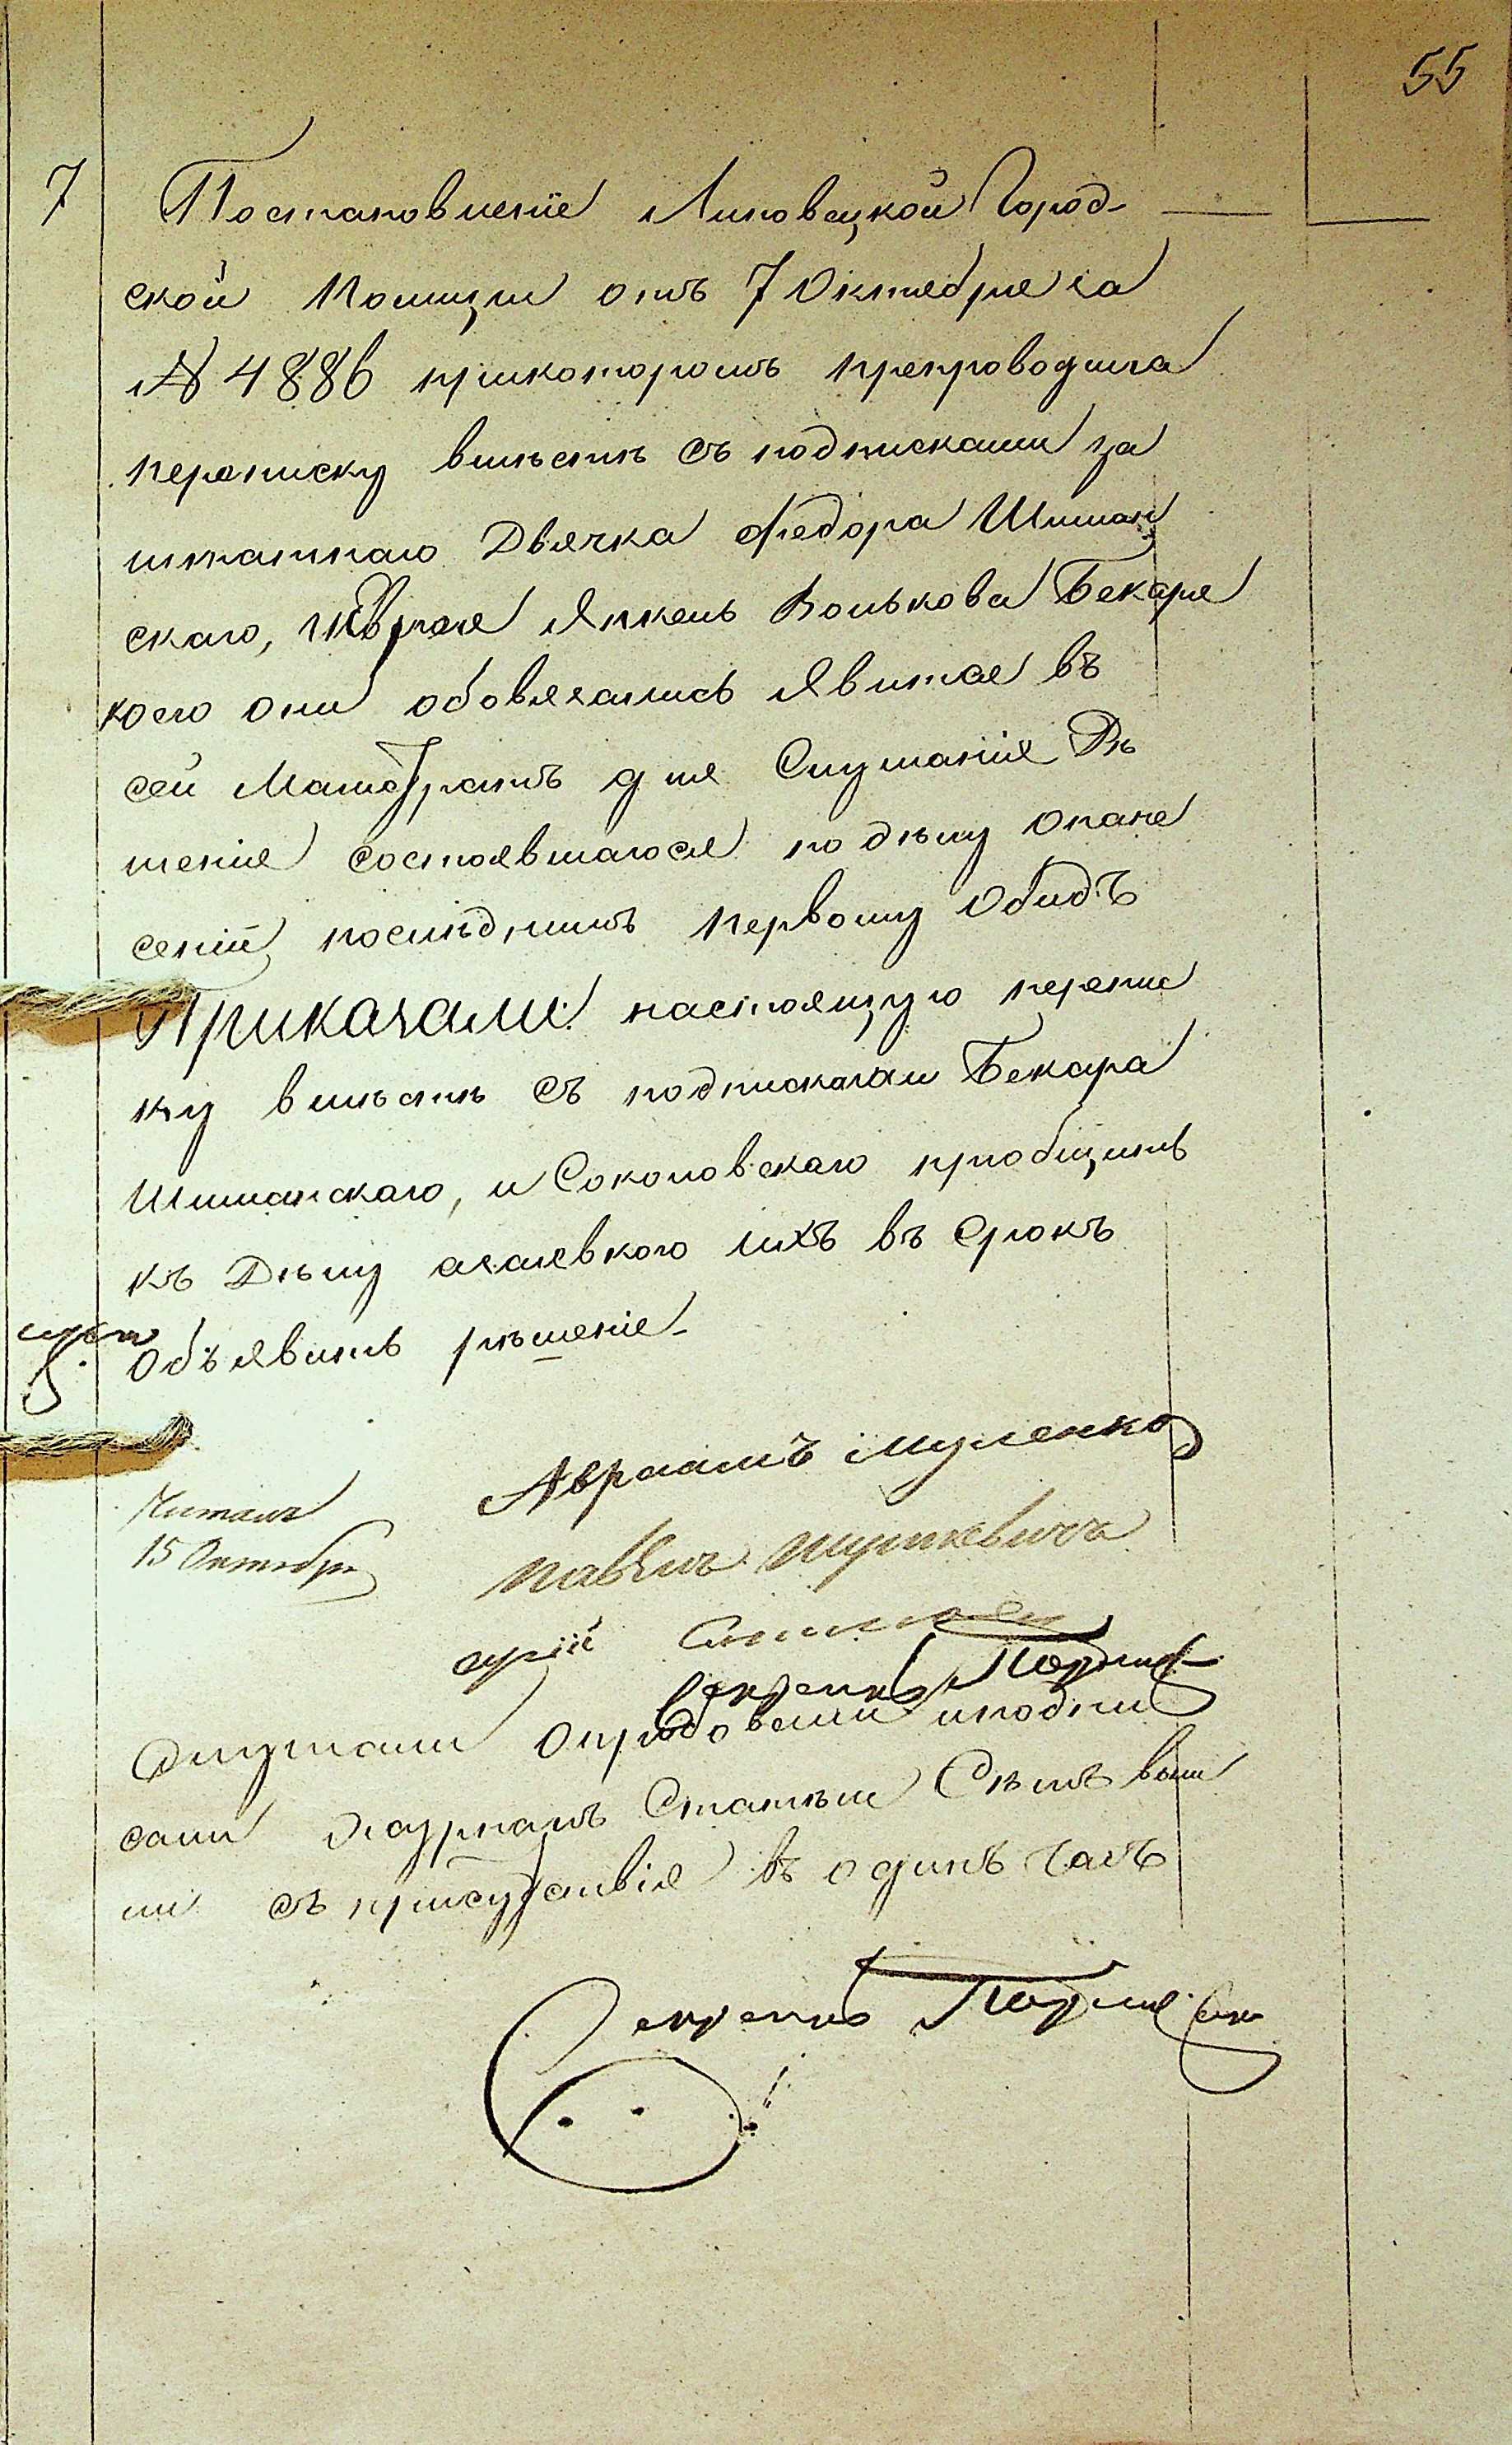 55
7 Постановленіе Липовецкой Город-
ской Полиціи отъ 7 Октебря за
№ 4886 прикоторомъ препроводила
переписку вмѣстѣ съ подписками за
штатнаго Дьячка Федора Шиман
скаго, и Еврея Янкель Волькова Бекаря
коего они обовязались явится въ
сей Магистратъ для Слушанія Рѣ
шенія состоявшагося по дѣлу онане
сеніи послѣднимъ первому Обидъ
Приказали: настоящую перепис
ку вмѣстѣ съ подписками Бекара
Шиманскаго, и Соколовскаго пріобщить
къ Дѣлу а по явкѣ ихъ въ Срокъ
Объявить рѣшеніе-
Авраамъ
Читалъ
15 Октебря
павелъ
Секретарь
Слушали Опробовали иподпи
сали Журналъ Статьи Сѣмь вым
ли съ присудствія въ одинъ часъ
Секретарь